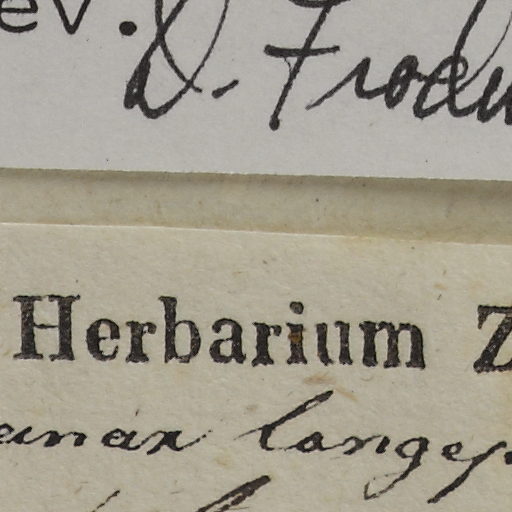 ev. D. Frod
Herbarium Z
anax longep